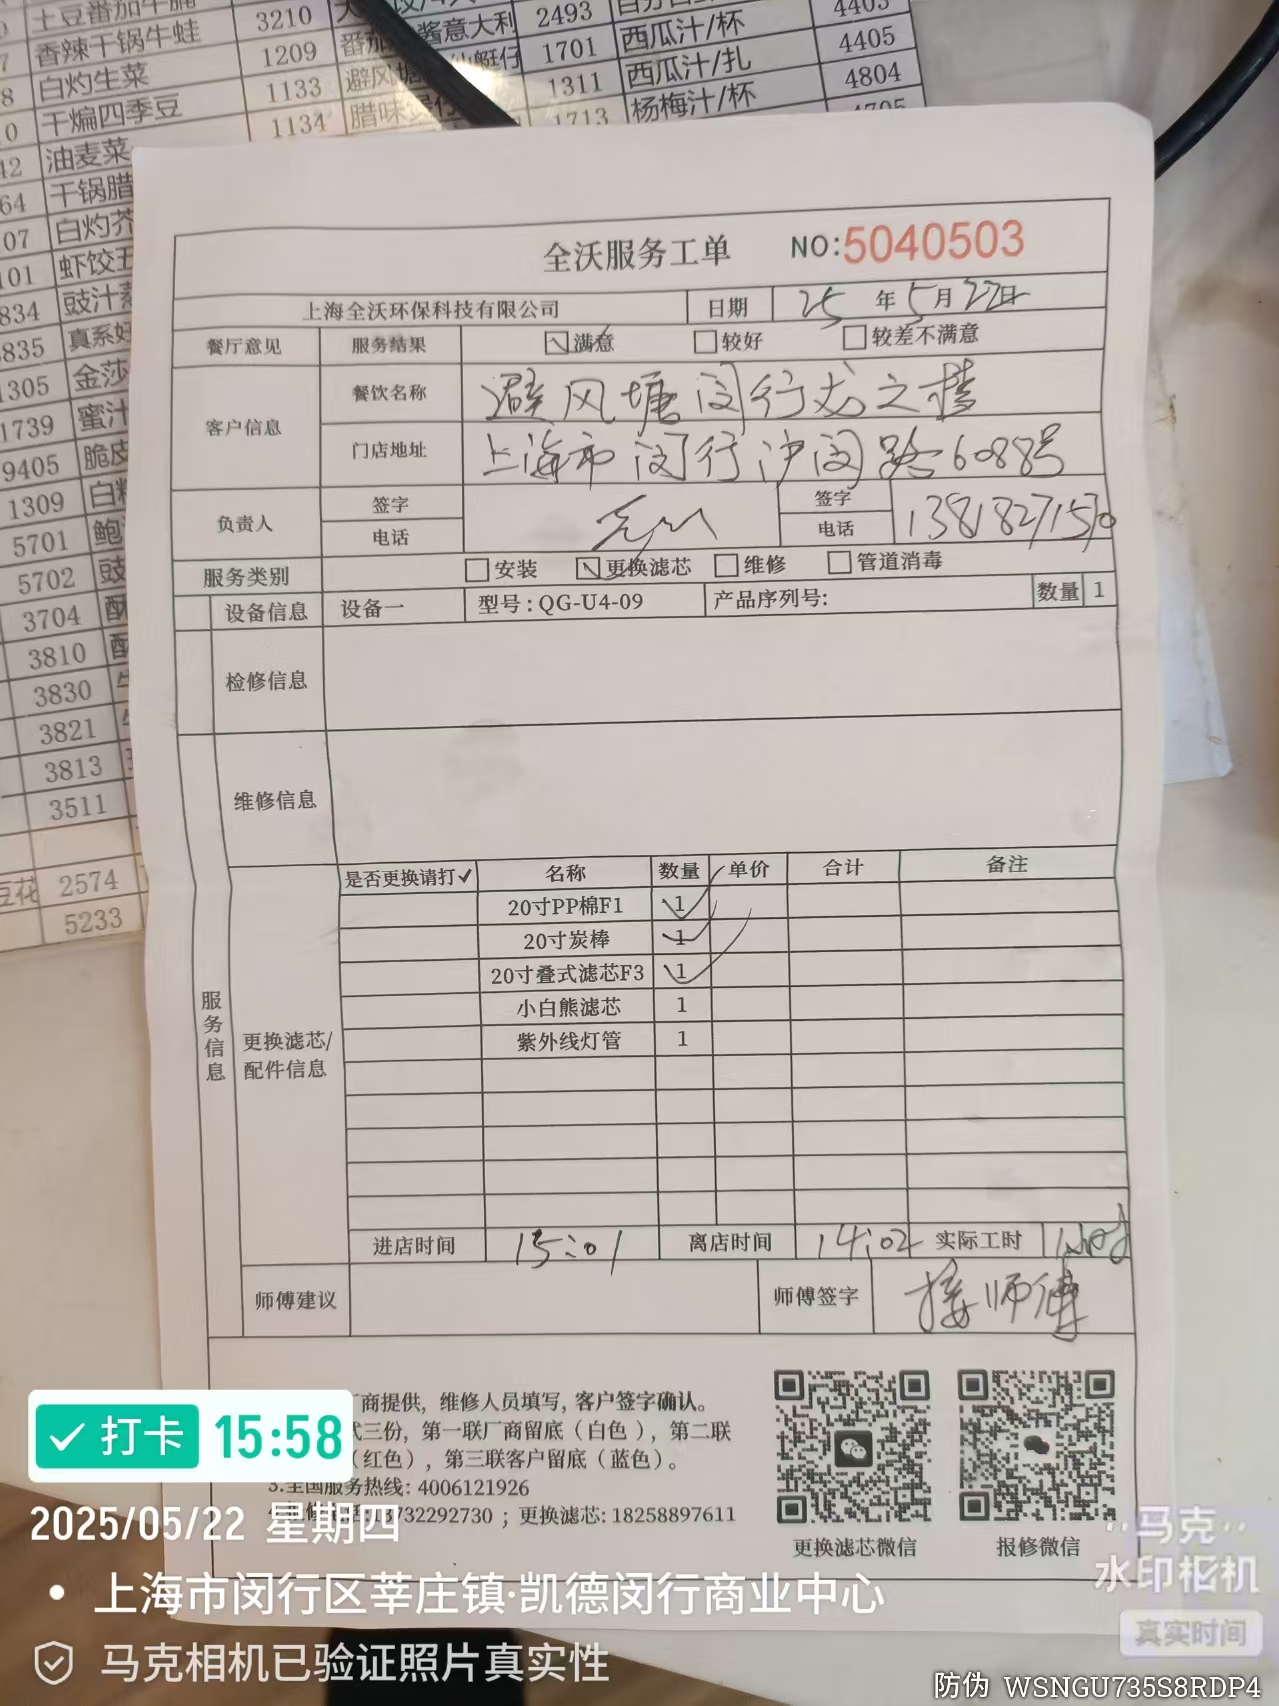 土豆番茄牛腩 3210 2493 4403
香辣干锅牛蛙 1209 酱意大利 1701 西瓜汁/杯 4405
白灼生菜 1133 避风塘 1311 西瓜汁/扎 4804
干煸四季豆 1134 腊味煲仔 1713 杨梅汁/杯 4705
42 油麦菜
64 干锅腊
07 白灼芥
101 虾饺五
834 豉汁蒸
835 真系好
1305 金莎
1739 蜜汁
9405 脆皮
1309 白粥
5701 鲍
5702 豉
3704 酥
3810 酥
3830
3821
3813
3511
豆花 2574
5233
全沃服务工单 NO:5040503
上海全沃环保科技有限公司 日期 25年5月22日
餐厅意见 服务结果 满意 较好 较差不满意
客户信息 餐饮名称 避风塘闵行龙之梦
门店地址 上海市闵行沪闵路6088号
负责人 签字 签字
电话 电话 13818271570
服务类别 安装 更换滤芯 维修 管道消毒
设备信息 设备一 型号:QG-U4-09 产品序列号: 数量 1
检修信息
维修信息
服务信息
更换滤芯/配件信息
是否更换请打✓ 名称 数量 单价 合计 备注
20寸PP棉F1 1
20寸炭棒 1
20寸叠式滤芯F3 1
小白熊滤芯 1
紫外线灯管 1
进店时间 15:01 离店时间 14:02 实际工时
师傅建议 师傅签字 接师傅
商提供，维修人员填写，客户签字确认。
式三份，第一联厂商留底（白色），第二联
（红色），第三联客户留底（蓝色）。
3.全国服务热线: 4006121926
13732292730 ；更换滤芯: 18258897611
更换滤芯微信 报修微信
打卡 15:58
2025/05/22 星期四
上海市闵行区莘庄镇·凯德闵行商业中心
马克相机已验证照片真实性
马克
水印相机
真实时间
防伪 WSNGU735S8RDP4